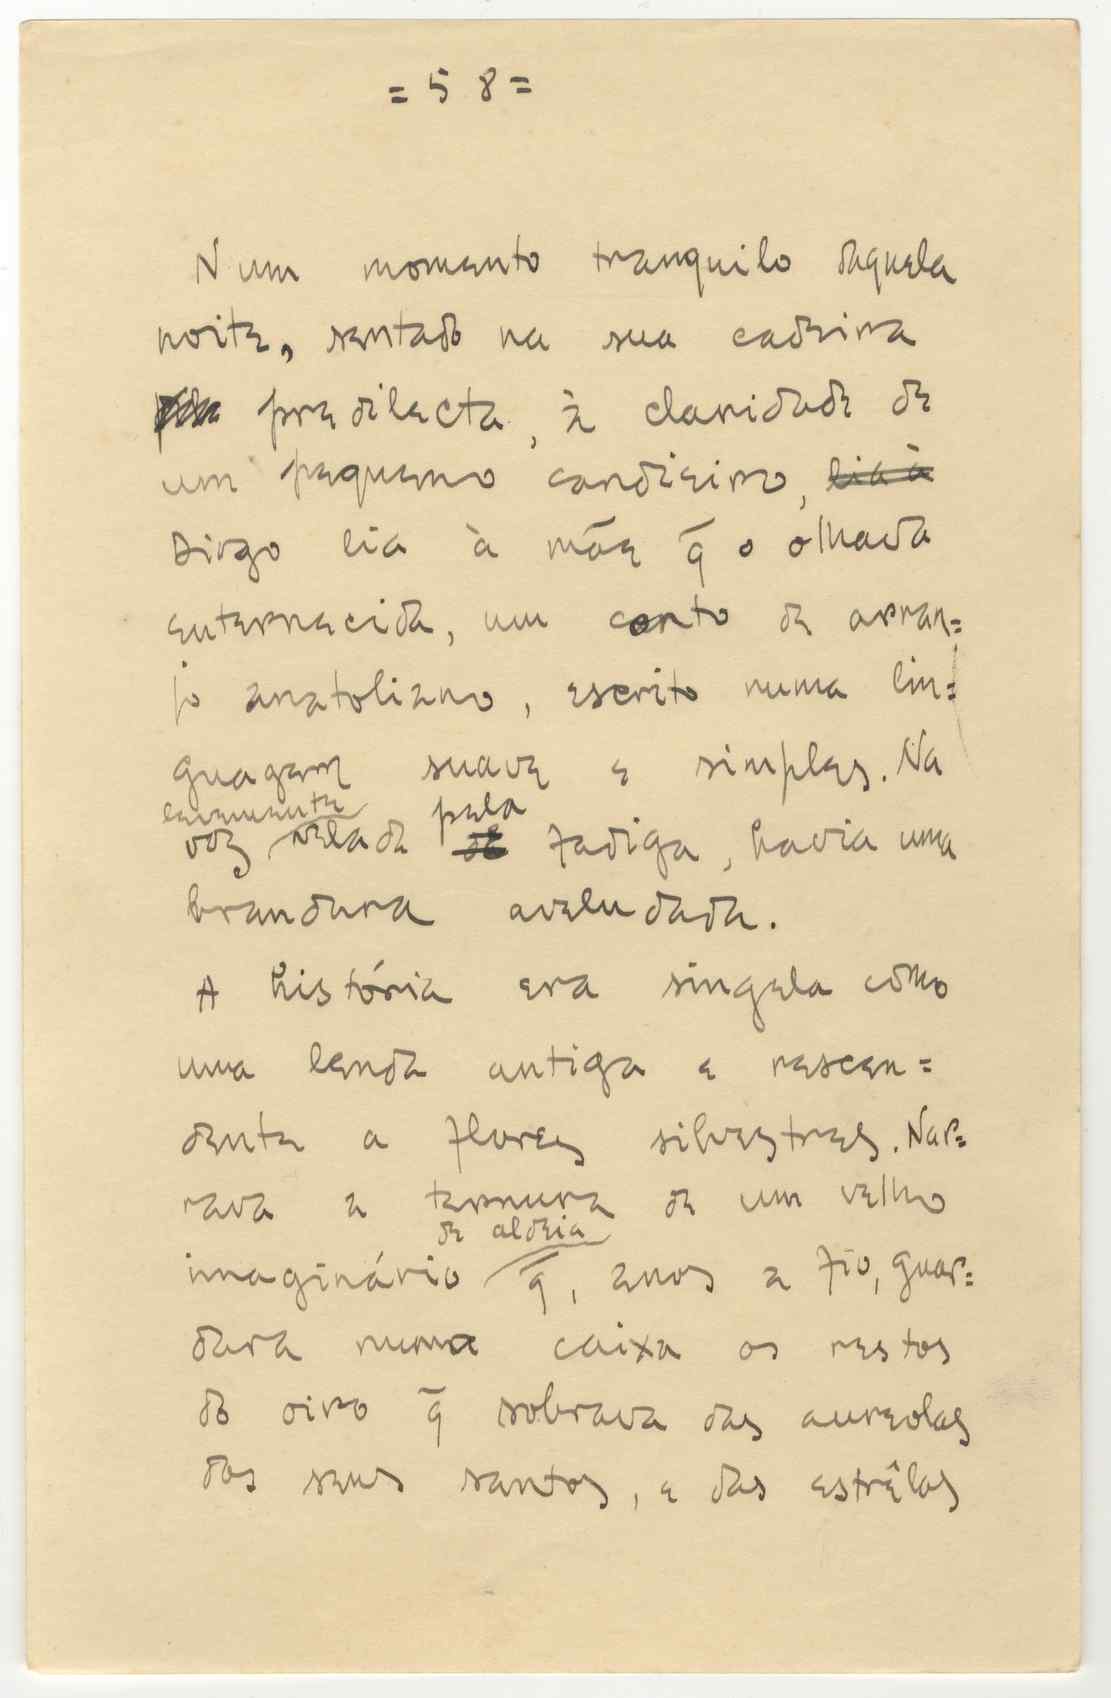 = 58 =
Num momento tranquilo daquela
noite, sentado na sua cadeira
predilecta, à claridade de
um pequeno candieiro, lia à
Diogo lia à mãe q̄ o olhava
enternecida, um conto de arran=
jo anatoliano, escrito numa lin=
guagem suave e simples. Na
levemente pela
voz velada de fadiga, havia uma
brandura aveludada.
A história era singela como
uma lenda antiga e rescen=
dente a flores silvestres. Nar=
rava a ternura de um velho
de aldeia
imaginário q̄, anos a fio, guar=
dara numa caixa os restos
do oiro q̄ sobrava das aureolas
dos seus santos, e das estrêlas